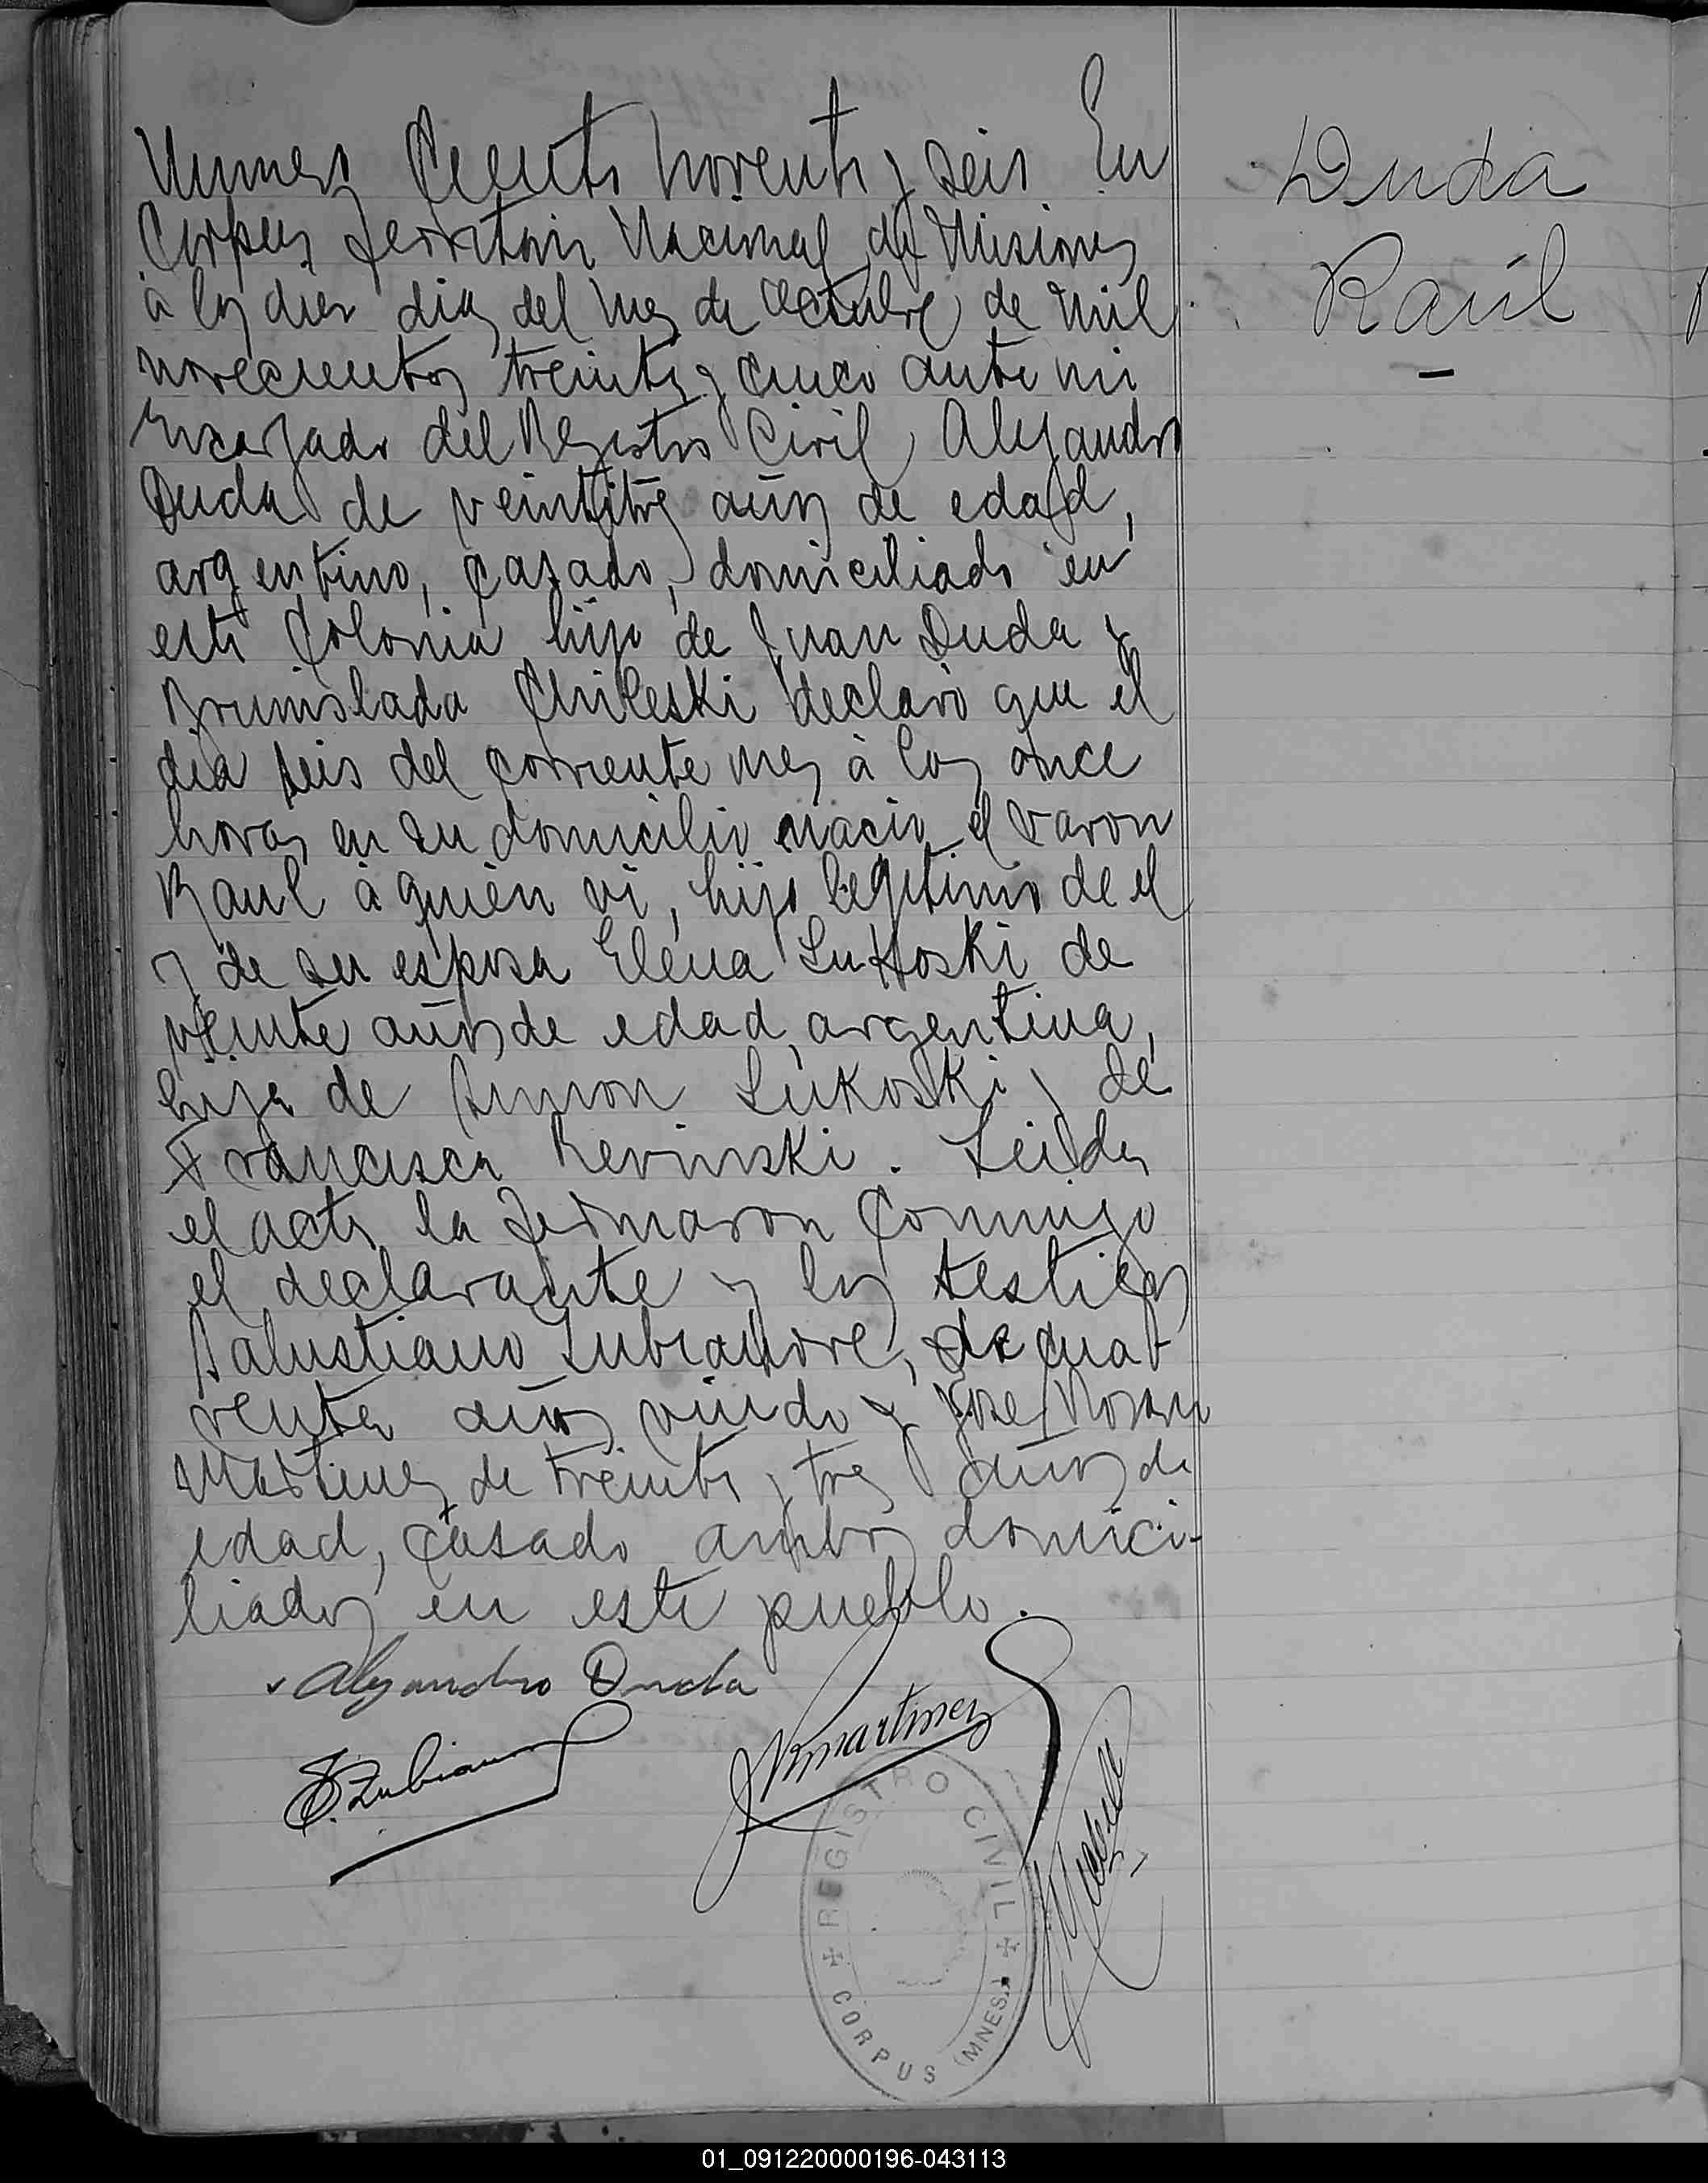 Numero Ciento noventa y seis En
Corpus Territorio Nacional de Misiones
à los diez dias del mes de Octubre de mil
novecientos treinta y cinco ante mi
Encargado del Registro Civil, Alejandro
Duda de veintitrés años de edad,
argentino, casado, domiciliado en
esta Colonia hijo de Juan Duda y
Brunislada Chileski declaró que el
dia seis del corriente mes à las once
horas en su domicilio nació el varon
Raul à quien vi, hijo legitimo de el
y de su esposa Elena Lukoski de
veinte años de edad, argentina,
hija de Simon Lukoski y de
Francisca Revinski. Leida
el acta la firmaron conmigo
el declarante y los testigos
Salustiano Zubiaurre, de cua-
renta años viudo y José Rosario
Martinez de treinta y tres años de
edad, casado ambos domici-
liados en este pueblo.
Alejandro Duda
S. Zubiaurre
JRMartinez
REGISTRO CIVIL
CORPUS (MNES.)
Duda
Raúl
01_091220000196-043113